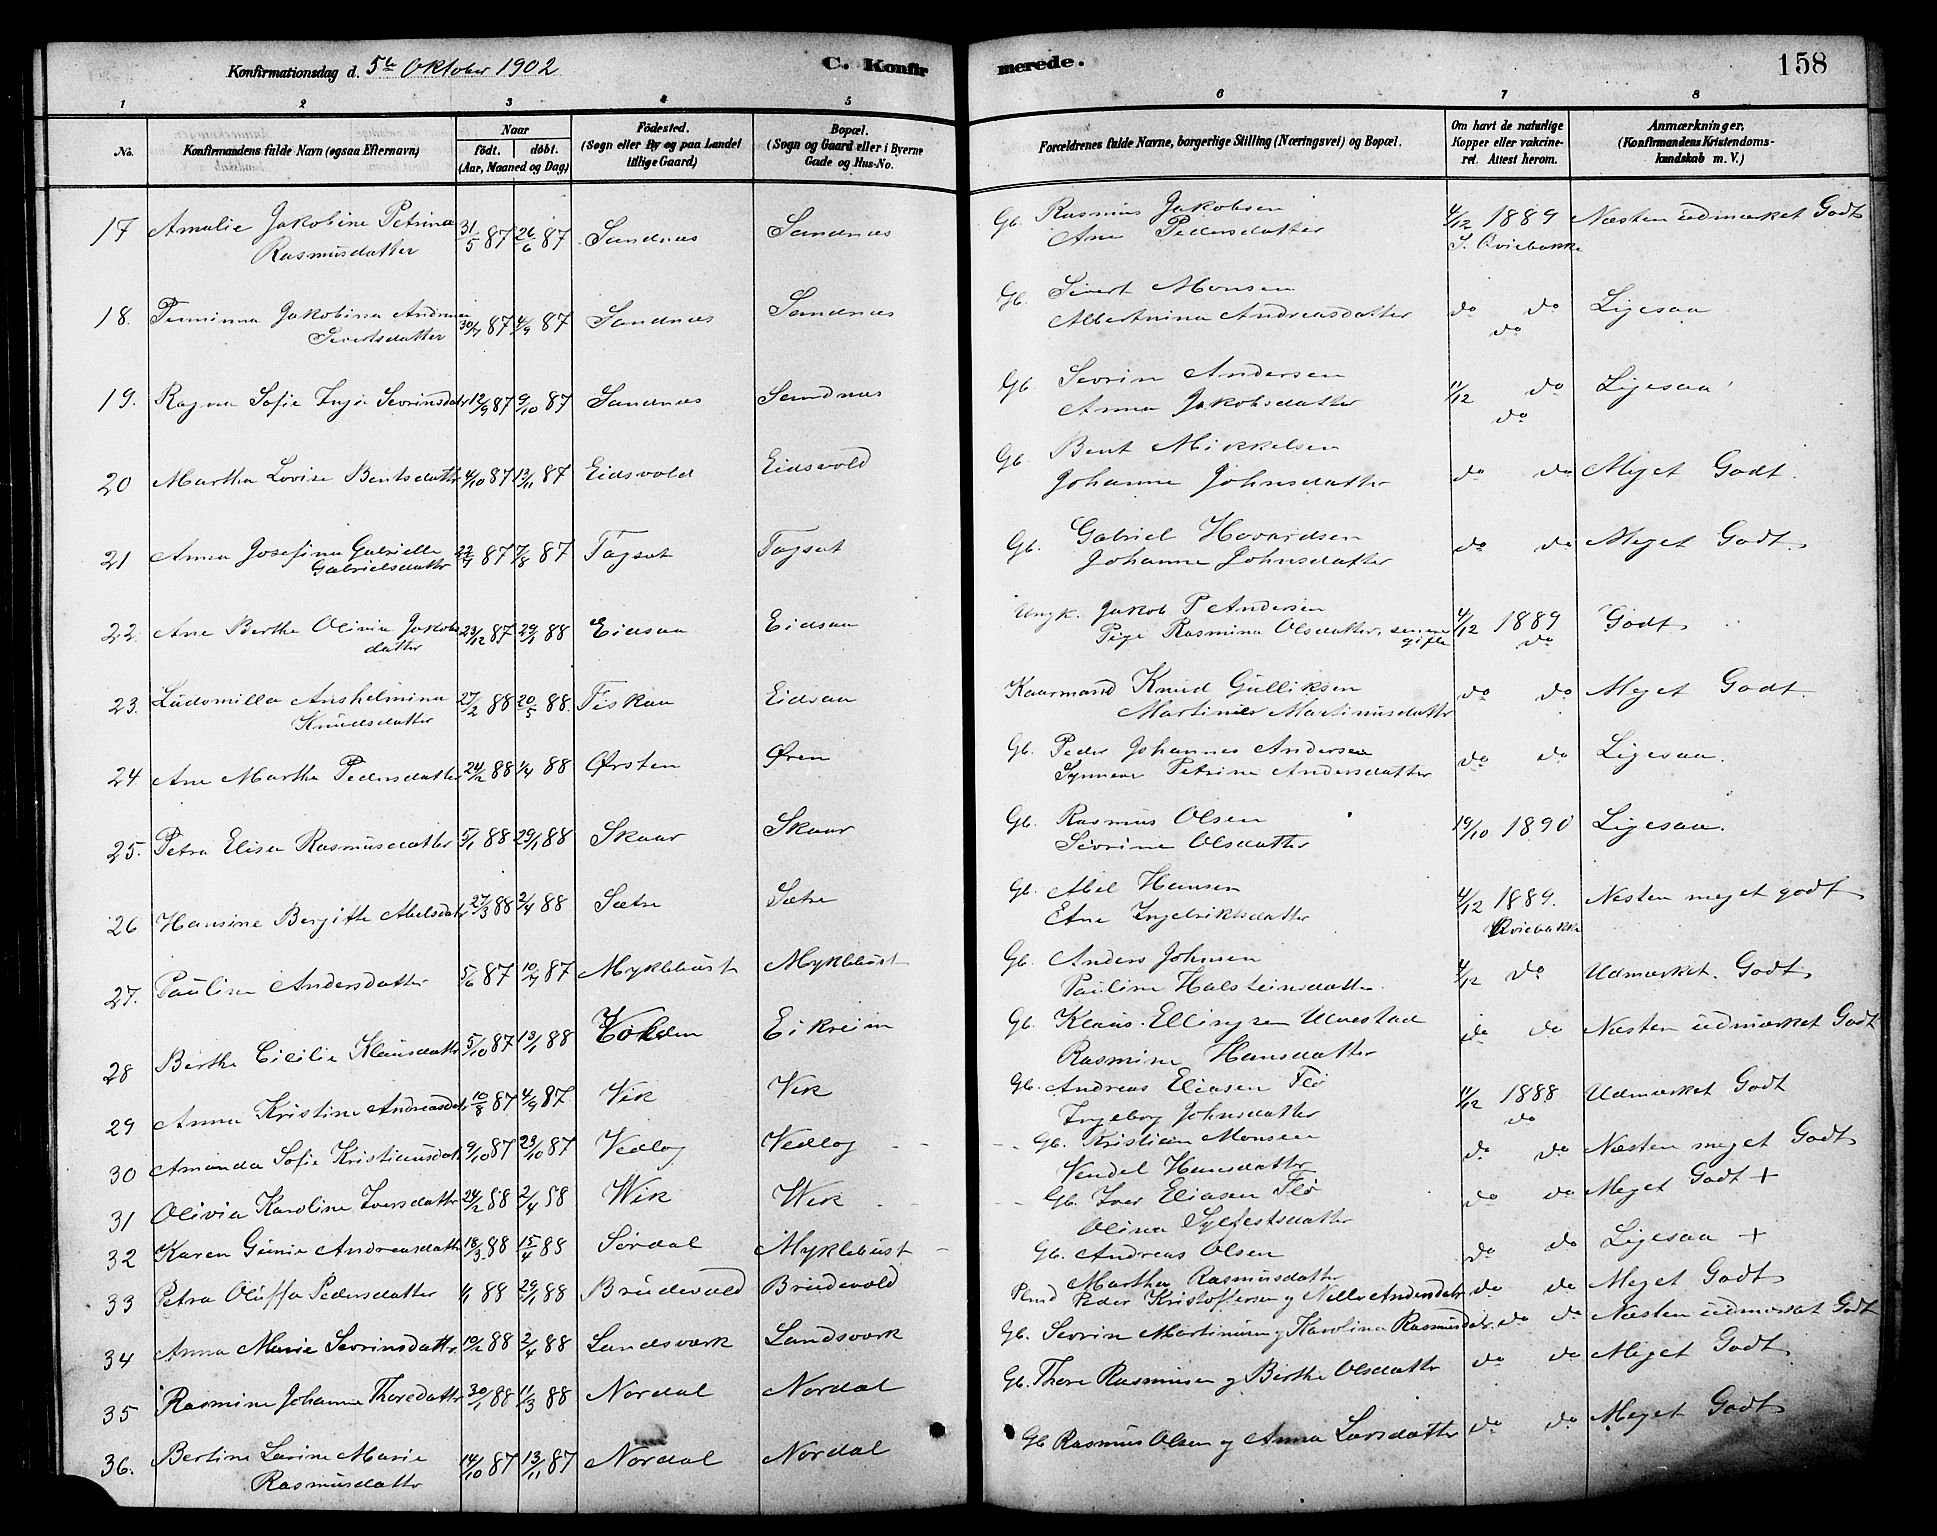 Konfirmationsdag d. 5te Oktober 1902 C. Konfirmerede. 158
1 2 3 4 5 6 7 8
No. Konfirmandens fulde Navn (ogsaa Efternavn) Naar födt. döbt. (Aar, Maaned og Dag) Födested. (Sogn eller By og paa Landet tillige Gaard) Bopæl. (Sogn og Gaard eller i Byerne Gade og Hus-No. Forældrenes fulde Navne, borgerlige Stilling (Næringsvei) og Bopæl. Om havt de naturlige Kopper eller vakcineret. Attest herom. Anmærkninger. (Konfirmandens Kristendomskundskab m. V.)
17 Amalie Jakobine Petrine Rasmusdatter 31/5 87 26/6 87 Sandnæs Sandnæs Gb. Rasmus Jakobsen Ane Pedersdatter 4/12 1889 S. Qviebakke Næsten udmærket Godt
18. Jakobina Andrina Sivertsdatter 30/7 87 4/9 87 Sandnæs Sandnæs Gb. Sivert Monsen Albertnina Andreasdatter do do do Ligesaa
19. Ragna Sofie Inga Sevrinsdatr 12/9 87 9/10 87 Sandnæs Sandnæs Gb. Sevrin Andersen Anna Jakobsdatter 11/12 do do Ligesaa
20 Martha Lovise Bentsdattr 4/10 87 13/11 87 Eidsvold Eidsvold Gb. Bent Mikkelsen Johanne Johnsdatter do do Meget Godt.
21 Anna Josefina Gabrielle Gabrielsdattr 22/7 87 7/8 87 Tagsæt Tagsæt Gb. Gabriel Hovardsen Johanne Johnsdatter do do Meget Godt.
22. Ane Berthe Olivia Jakobsdatter 23/12 87 29/1 88 Eidsaa Eidsaa Ungk. Jakob P Andersen Pige Rasmina Olsdatter, senere gifte 4/12 1889 do Godt
23. Ludomilla Anshelmina Knudsdatter 27/2 88 20/5 88. Fiskaa Eidsaa Kaarmand Knud Gulliksen Martine Martinusdattr do do Meget Godt.
24 Ane Marthe Pedersdatter 24/2 88 1/4 88 Ørsten Øren Gb. Peder Johannes Andersen Synneve Petrine Andersdatter do do Ligesaa.
25. Petra Elisa Rasmusdatter 5/1 88 29/1 88 Skaar Skaar Gb. Rasmus Olsen Sevrine Olsdatter 19/10 1890 Ligesaa.
26 Hansine Bergitte Abelsdatr 27/3 88 2/4 88 Sætre Sætre Gb. Abel Hansen Ane Ingebriktsdatter 4/12 1889. Qviebakke Næsten meget godt
27. Pauline Andersdatter 5/6 87 10/7 87 Myklebust Myklebust Gb. Anders Johnsen Pauline Halsteinsdatter 4/12 do Udmærket Godt
28 Berthe Cicilie Klausdattr 5/10 87 13/1 88 Volden Eikreim Gb. Klaus Ellingsen Ulvestad Rasmine Hansdatter do do Næsten udmærket Godt
29 Anna Kristine Andreasdatr 10/8 87 4/9 87 Vik Vik Gb. Andreas Eliasen Flø Ingeborg Johnsdatter 11/12 1888 do Udmærket Godt
30 Amanda Sofie Kristiansdatr 9/10 87 23/10 87 Vedlog Vedlog Gb. Kristian Monsen Vendel Hansdatter do do Næsten meget Godt
31 Olivia Karoline Iversdatter 24/2 88 2/4 88 Wik Wik Gb. Iver Eliasen Flø Olina Sylfestsdatter do do Meget Godt +
32 Karen Gunie Andreasdattr 18/3 88 15/4 88 Sørdal Myklebust Gb. Andreas Olsen Marthe Rasmusdatter do do Ligesaa +
33 Petra Oluffa Pedersdatter 88 29/1 88 Brudevold Brudevold Plmd Peder Kristoffersen og Nille Andersdatr do do Meget Godt
34 Anna Marie Sevrinsdattr 10/2 88 2/4 88 Landsværk Landsværk Gb. Sevrin Martinusen og Karolina Rasmusdatr. do do Næsten udmærket Godt
35 Rasmine Johanne Thoresdattr 30/1 88 11/3 88 Nordal Nordal Gb. Thore Rasmusen og Berthe Olsdatter do do Meget Godt
36. Bertine Lavine Marie Rasmusdattr 14/10 87 13/11 87 Nordal Nordal Gb Rasmus Olsen og Anna Larsdatter do do Meget Godt